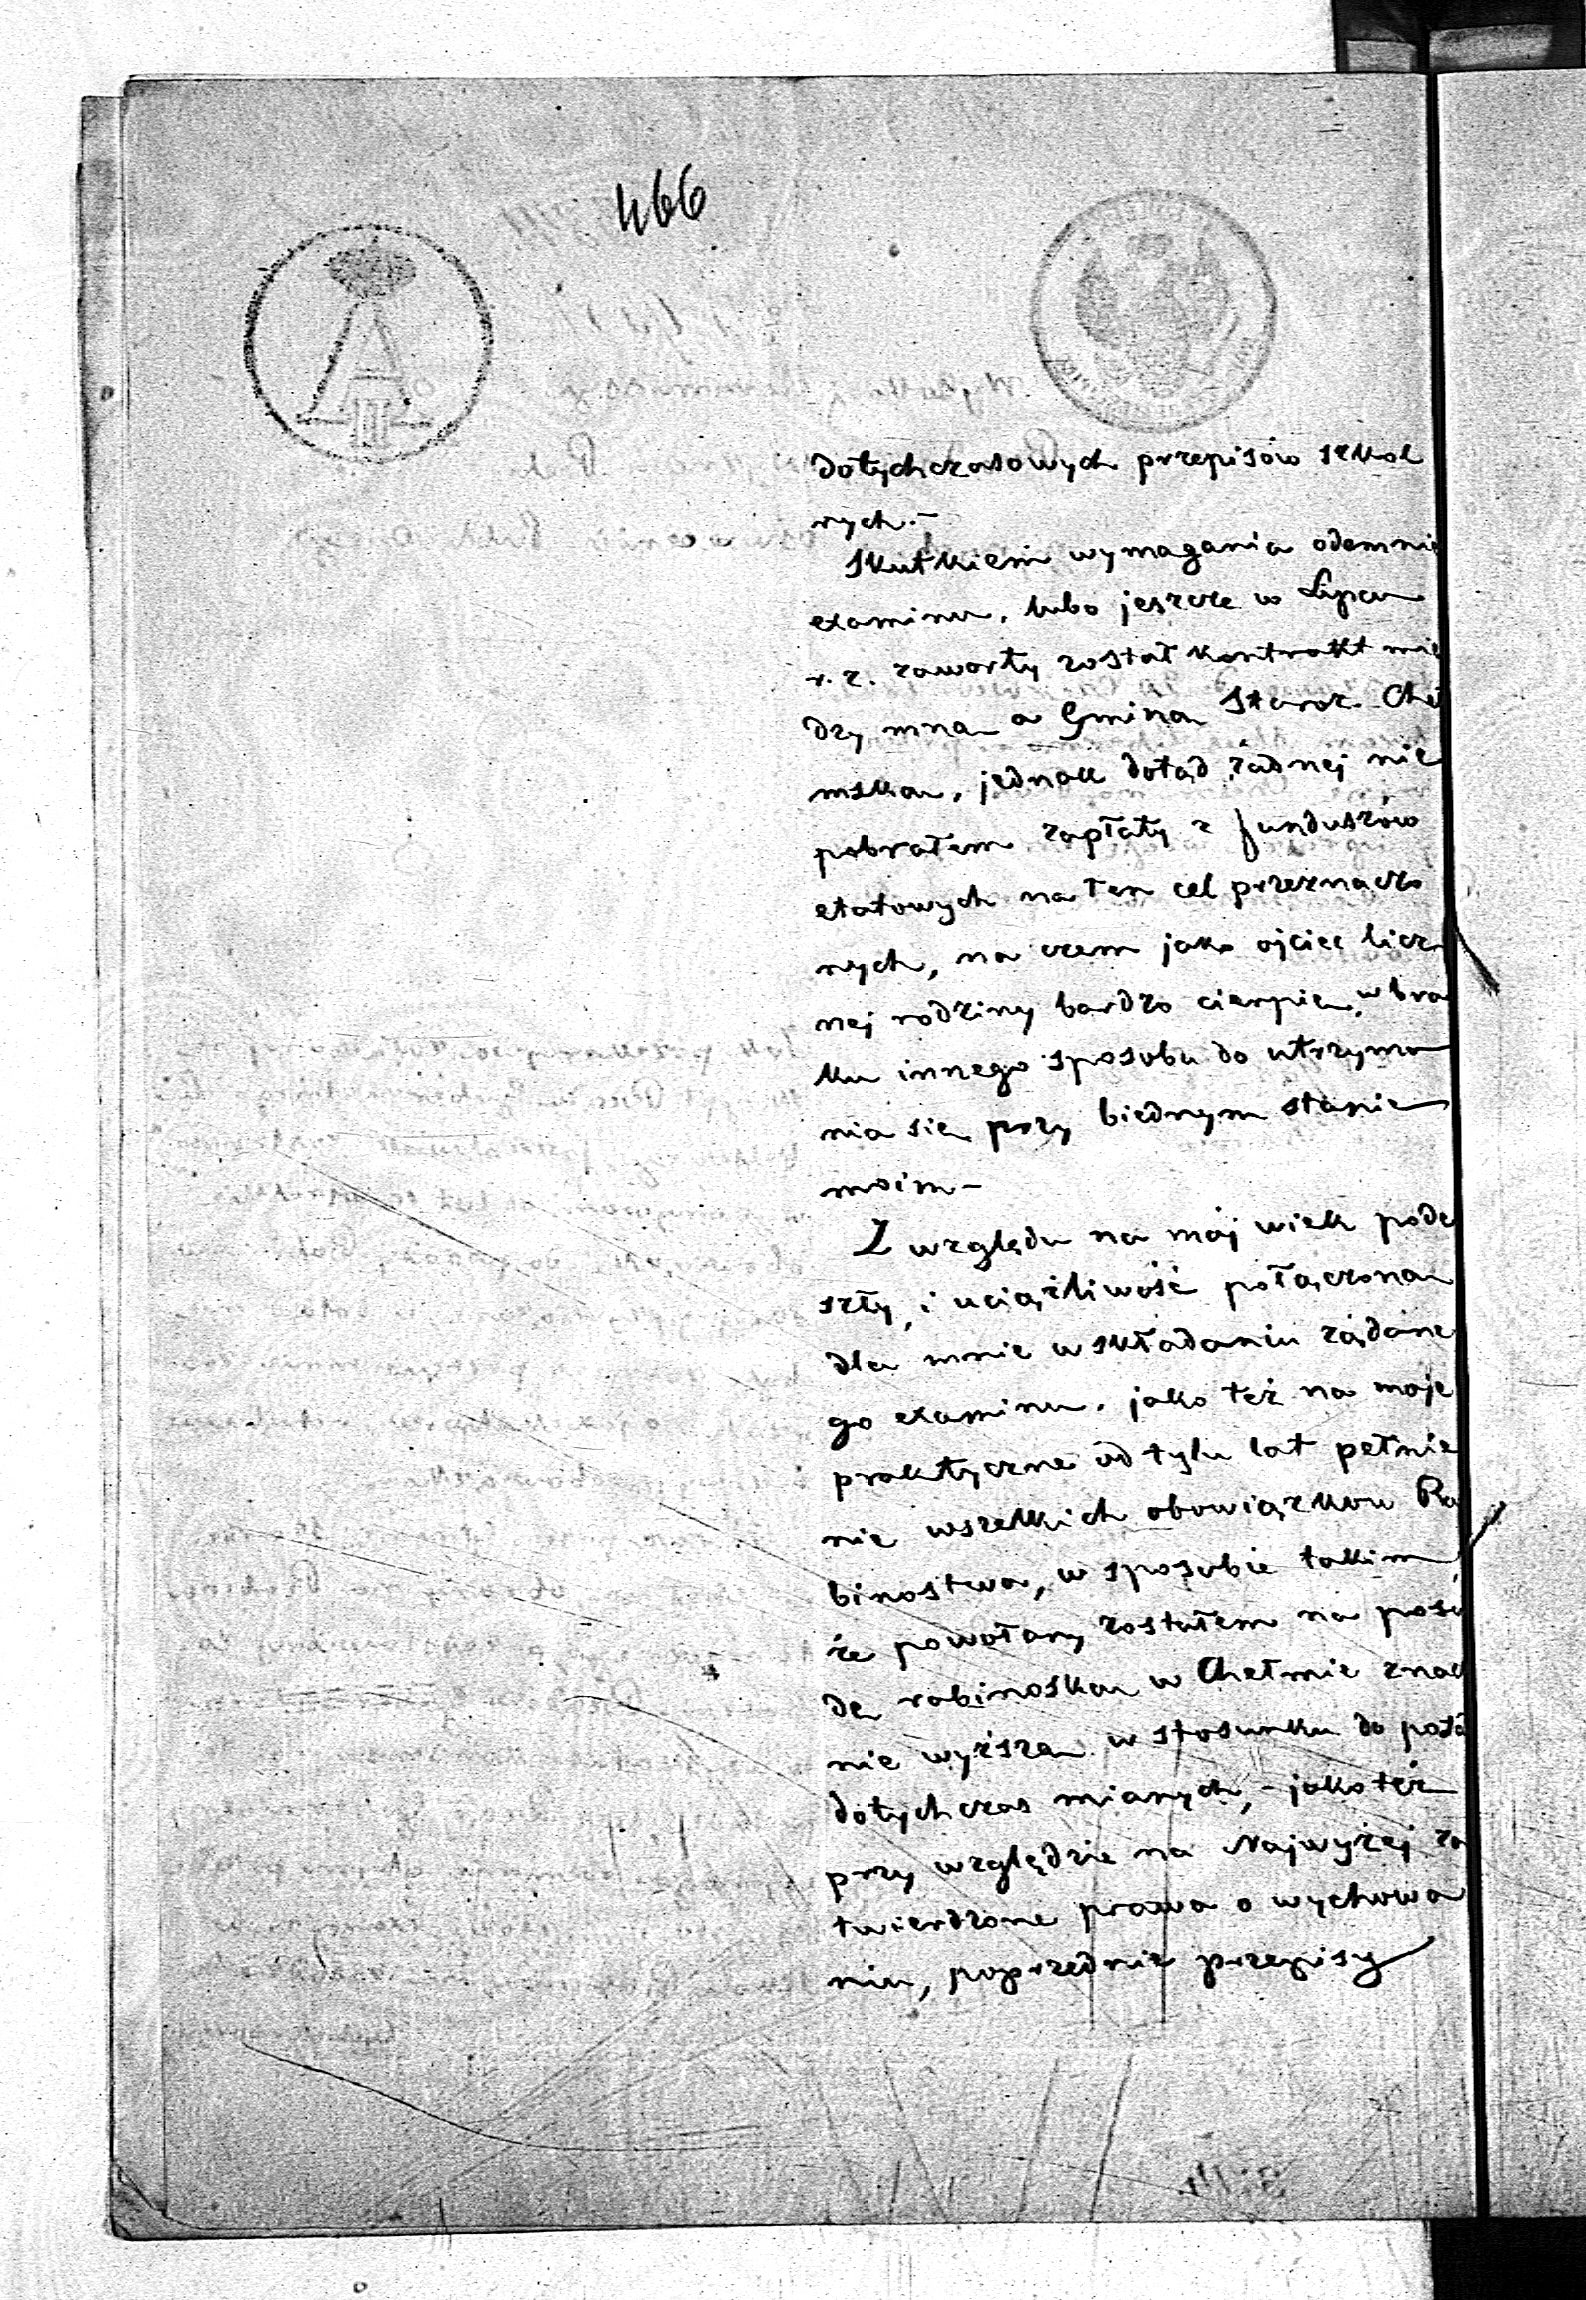 466
dotychczasowych przepisów szkol
nych.-
Skutkiem wymagania odemnie
examinu, lubo jeszcze w Lipcu
r. z. zawarty został kontrakt mię
dzy mną a Gminą Staroz. Cheł
mską, jednak dotąd żadnej nie
pobrałem zapłaty z funduszów
etatowych na ten cel przeznaczo
nych, na czem jako ojciec licz
nej rodziny bardzo cierpię, w bra
ku innego sposobu do utrzyma
nia się przy biednym stanie
moim-
Z względu na mój wiek pode
szły, i uciążliwość połączoną
dla mnie w składaniu żądane
go examinu, jako też na moje
praktyczne od tylu lat pełnie
nie wszelkich obowiązkow Ra
binostwa, w sposobie takim
że powołany zostałem na posa
dę rabinoską w Chełmie znacz
nie wyższą w stosunku do posad
dotychczas mianych, - jako też
przy względzie na Najwyżej za
twierdzone prawa o wychowa
niu, poprzednie przepisy